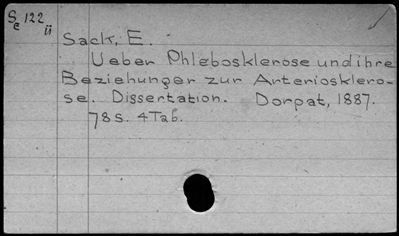 Se 122
ü
Sack, E.
Ueber Phlebosklerose und ihre
Beziehungen zur Arteriosklero-
se. Dissertation. Dorpat, 1887.
78 S. 4 Tab.